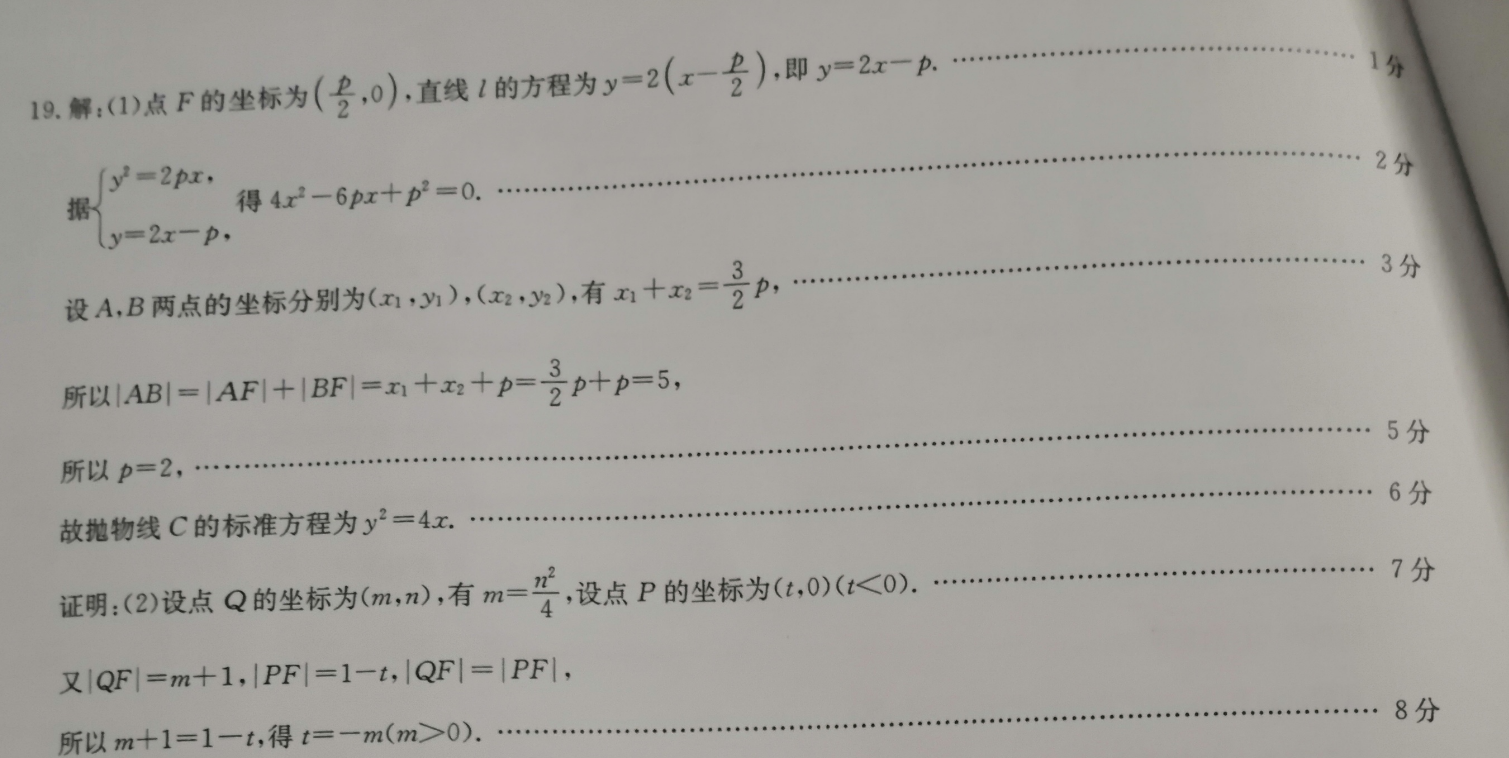 19. 解:(1)点 F 的坐标为(p/2,0),直线 l 的方程为 y=2(x-p/2),即 y=2x-p. …… 1分
据{y²=2px, y=2x-p, 得 4x²-6px+p²=0. …… 2分
设 A,B 两点的坐标分别为(x₁,y₁),(x₂,y₂),有 x₁+x₂=3/2 p, …… 3分
所以|AB|=|AF|+|BF|=x₁+x₂+p=3/2 p+p=5,
所以 p=2, …… 5分
故抛物线 C 的标准方程为 y²=4x. …… 6分
证明:(2)设点 Q 的坐标为(m,n),有 m=n²/4,设点 P 的坐标为(t,0)(t<0). …… 7分
又|QF|=m+1,|PF|=1-t,|QF|=|PF|,
所以 m+1=1-t,得 t=-m(m>0). …… 8分